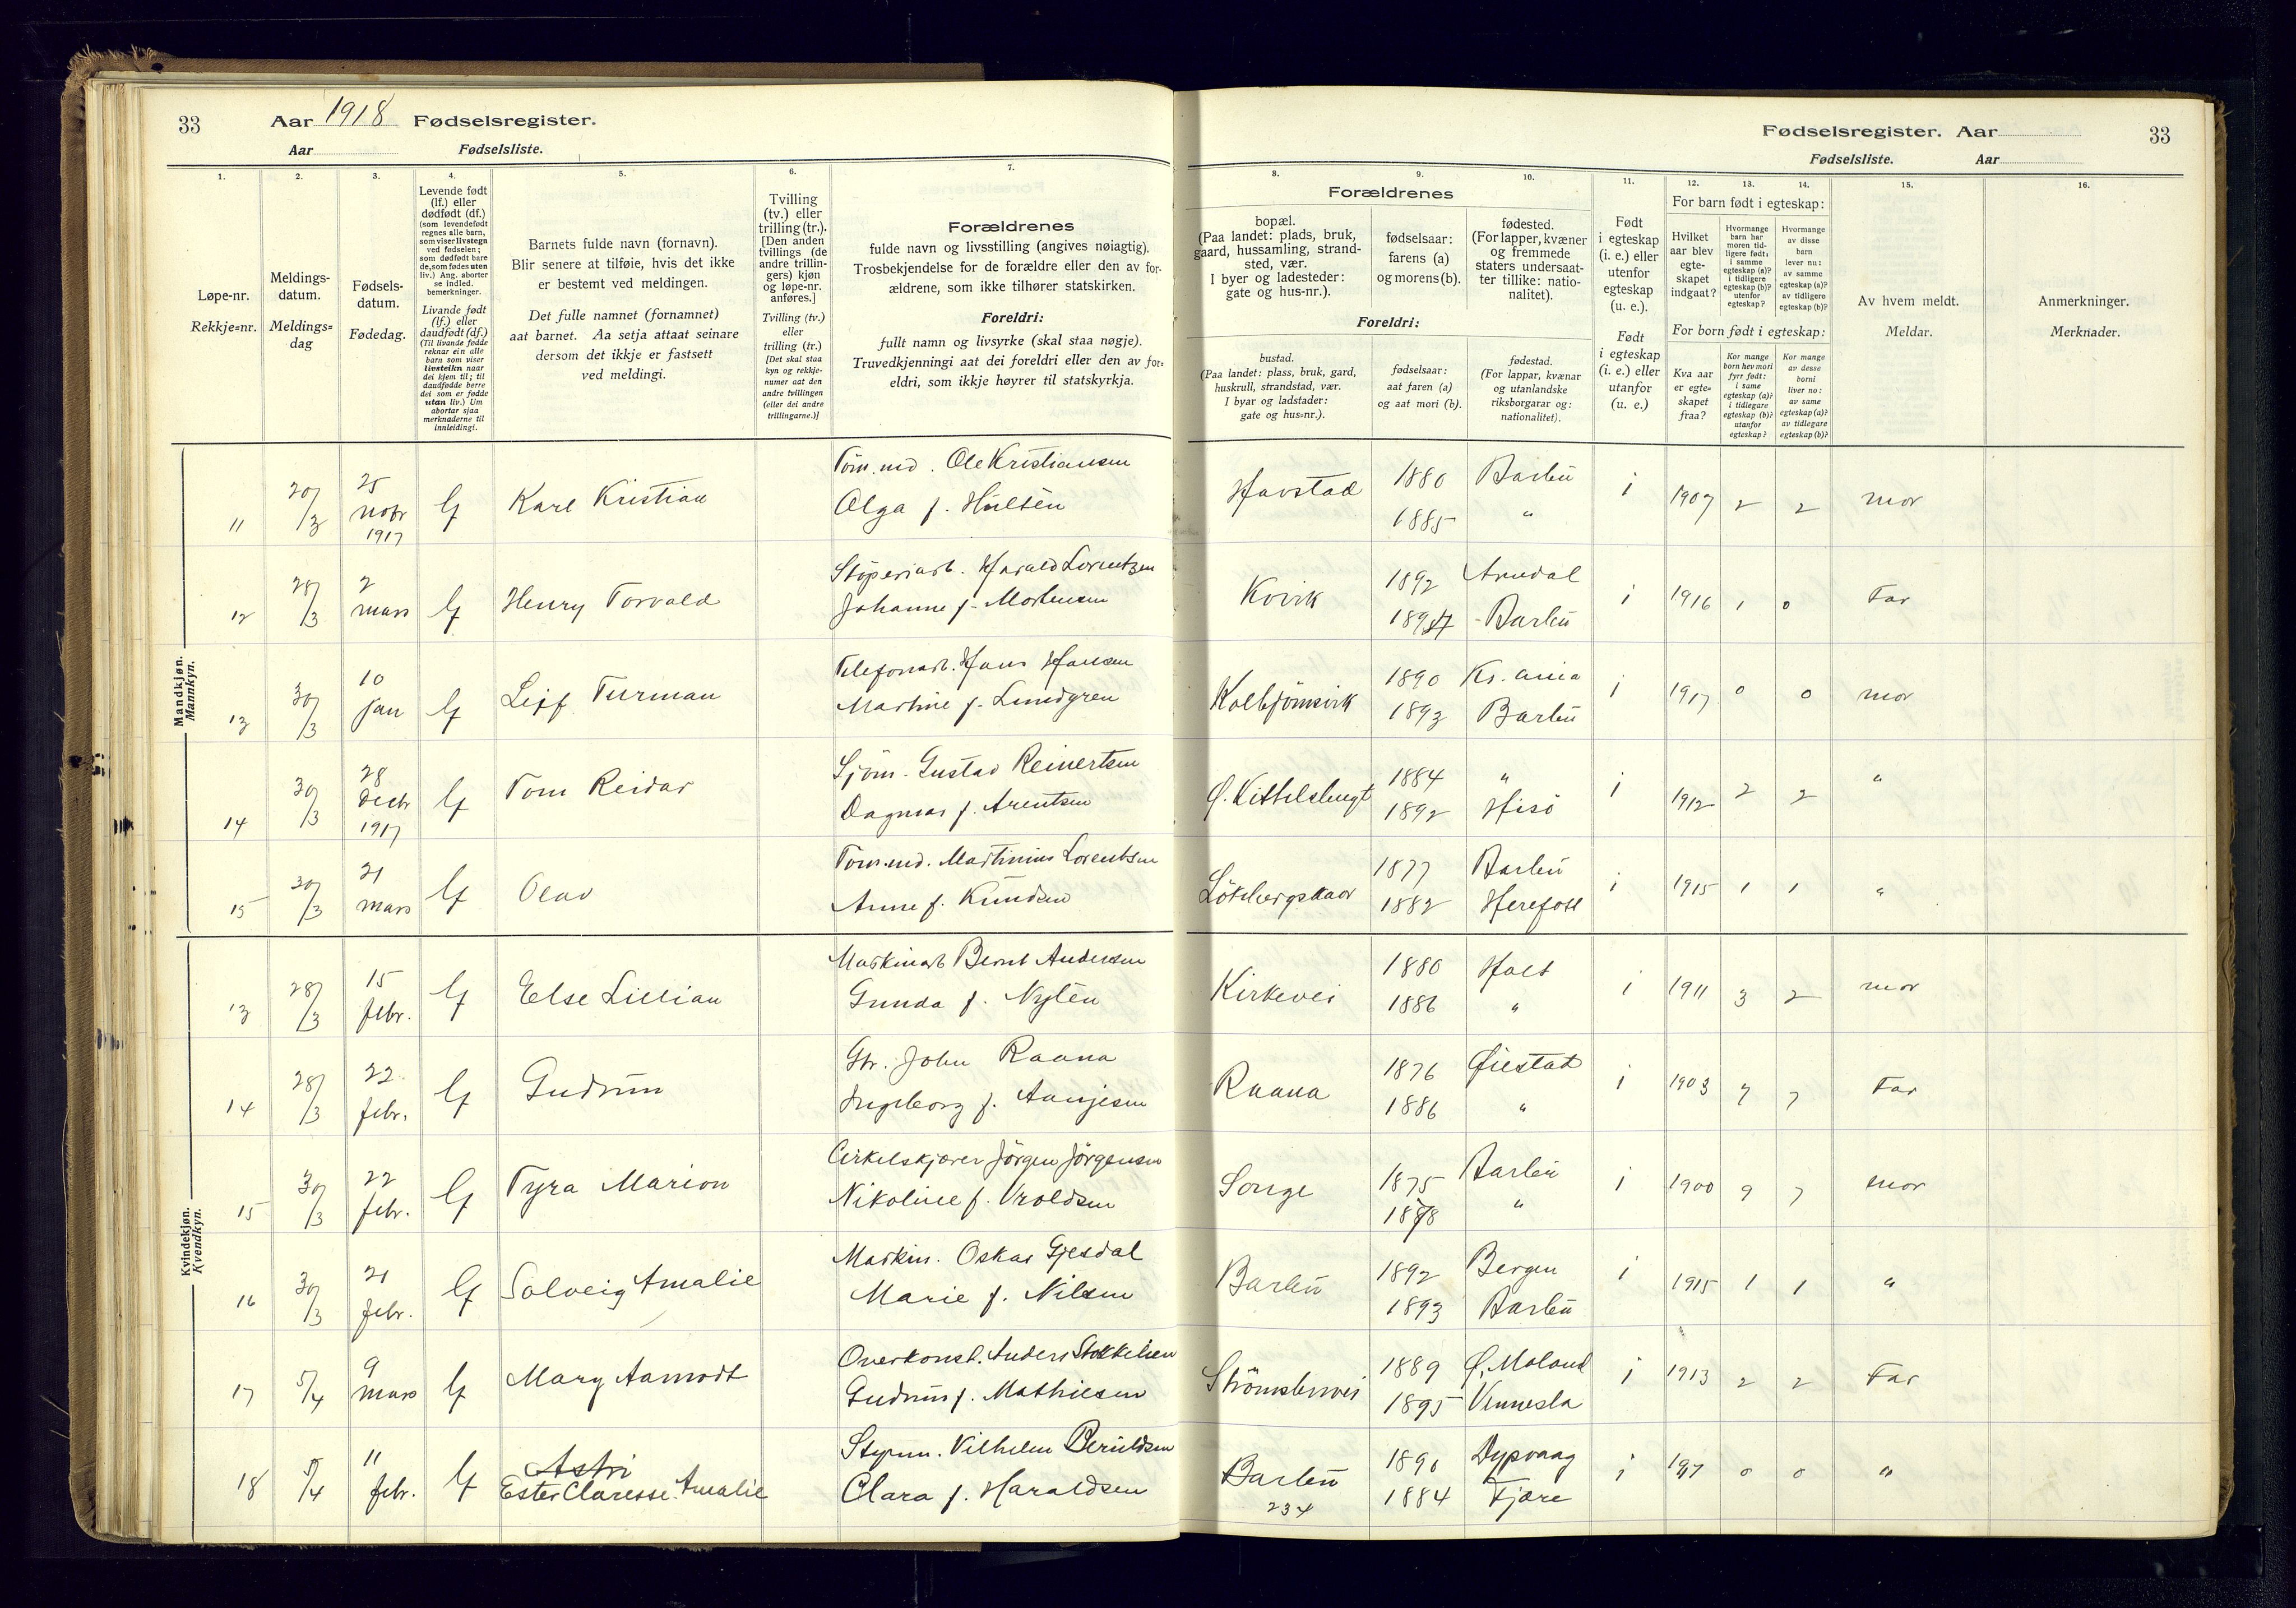 33
Aar 1918 Fødselsregister.
Aar Fødselsliste.
Fødselsregister. Aar
33
Fødselsliste. Aar
1. 2. 3. 4. 5. 6. 7. 8. 9. 10. 11. 12. 13. 14. 15. 16.
Løpe-nr.
Rekkje=nr.
Meldings-
datum.
Meldings=
dag
Fødsels-
datum.
Fødedag.
Levende født
(lf.) eller
dødfødt (df.)
(som levendefødt
regnes alle barn,
som viser livstegn
ved fødselen;
som dødfødt bare
de, som fødes uten
liv.) Ang. aborter
se indled.
bemerkninger.
Livande født
(lf.) eller
daudfødt (df.)
(Til livande fødde
reknar ein alle
barn som viser
livsteikn naar
dei kjem til; til
daudfødde berre
dei som er fødde
utan liv.) Um
abortar sjaa
merknaderne til
innleidingi.
Barnets fulde navn (fornavn).
Blir senere at tilføie, hvis det ikke
er bestemt ved meldingen.
Det fulle namnet (fornamnet)
aat barnet. Aa setja attaat seinare
dersom det ikkje er fastsett
ved meldingi.
Tvilling
(tv.) eller
trilling (tr.).
[Den anden
tvillings (de
andre trillin-
gers) kjøn
og løpe-nr.
anføres.]
Tvilling (tv.)
eller
trilling (tr.)
[Det skal staa
kyn og rekkje-
numer aat den
andre tvillingen
(eller dei andre
trillingarne.)]
Forældrenes
fulde navn og livsstilling (angives nøiagtig).
Trosbekjendelse for de forældre eller den av for-
ældrene, som ikke tilhører statskirken.
Foreldri:
fullt namn og livsyrke (skal staa nøgje).
Truvedkjenningi aat dei foreldri eller den av for=
eldri, som ikkje høyrer til statskyrkja.
Forældrenes
bopæl.
(Paa landet: plads, bruk,
gaard, hussamling, strand-
sted, vær.
I byer og ladesteder:
gate og hus-nr.).
fødselsaar:
farens (a)
og morens (b).
fødested.
(For lapper, kvæner
og fremmede
staters undersaat-
ter tillike: natio-
nalitet).
Foreldri:
bustad.
(Paa landet: plass, bruk, gard,
huskrull, strandstad, vær.
I byar og ladstader:
gate og hus=nr.).
fødselsaar:
aat faren (a)
og aat mori (b).
fødestad.
(For lappar, kvænar
og utanlandske
riksborgarar og:
nationalitet).
Født
i egteskap
(i. e.) eller
utenfor
egteskap
(u. e.).
Født
i egteskap
(i. e.) eller
utanfor
(u. e.)
For barn født i egteskap:
Hvilket
aar blev
egte-
skapet
indgaat?
Hvormange
barn har
moren tid-
ligere født:
i samme
egteskap (a)?
i tidligere
egteskap (b)?
utenfor
egteskap?
Hvormange
av disse
barn
lever nu:
av samme
egteskap (a)?
av tidligere
egteskap (b)?
For born født i egteskap:
Kva aar
er egte=
skapet
fraa?
Kor mange
born hev mori
fyrr født:
i same
egteskap (a)?
i tidlegare
egteskap (b)?
utanfor
egteskap?
Kor mange
av desse
borni
liver no:
av same
egteskap (a)?
av tidlegare
egteskap (b)?
Av hvem meldt.
Meldar.
Anmerkninger.
Merknader.
Mandkjøn.
Mannkyn.
11 20/3 25 novbr 1917 lf Karl Kristian Tøm.md. Ole Kristiansen
Olga f. Hultén Havstad 1880 Barbu
1885 " i 1907 2 2 mor
12 28/3 2 mars lf Henry Torvald Støperiarb. Harald Lorentzen
Johanne f. Mortensen Kvik 1892 Arendal
Barbu i 1916 1 0 Far
13 30/3 10 jan lf Leif Turman Telefonarb. Hans Hansen
Martine f. Lundgren Kolbjörnsvik 1890 Kr.ania
1893 Barbu i 1917 0 0 mor
14 30/3 28 decbr 1917 lf Tom Reidar Sjøm. Gustav Reinertsen
Dagmar f. Arentsen Ø. Kittelsbugt 1884 "
1892 Hisö i 1912 2 2 "
15 30/3 21 mars lf Olav Tøm.md. Martinius Lorentsen
Anne f. Knudsen 1877 Barbu
1882 Herefoss i 1915 1 1 "
Kvindekjøn.
Kvendkyn.
13 28/3 15 febr. lf Else Lillian Maskinarb Bernt Andersen
Gunda f. Nylén Kirkevei 1880 Holt
1886 " i 1911 3 2 mor
14 28/3 22 febr. lf Gudrun Gbr. John Raana
Ingeborg f. Aanjesen Raana 1876 Øiestad
1886 " i 1903 7 7 Far
15 30/3 22 febr. lf Tyra Marion Cirkelskjærer Jörgen Jörgensen
Nikoline f. Vroldsen Songe 1875 Barbu
1878 " i 1900 9 7 mor
16 30/3 21 febr. lf Solveig Amalie Maskin. Oskar Gjesdal
Marie f. Nilsen Barbu 1892 Bergen
1893 Barbu i 1915 1 1 "
17 5/4 9 mars lf Mary Aamodt Overkonst. Anders Stokkelien
Gudrun f. Mathiesen Strömsbuvei 1889 Ø. Moland
1895 Vennesla i 1913 2 2 Far
18 5/4 11 febr. lf Astri
Ester Claresse Amalie Styrm. Vilhelm Beruldsen
Clara f. Haraldsen Barbu
234 1890 Dypvaag
1884 Fjære i 1917 0 0 "